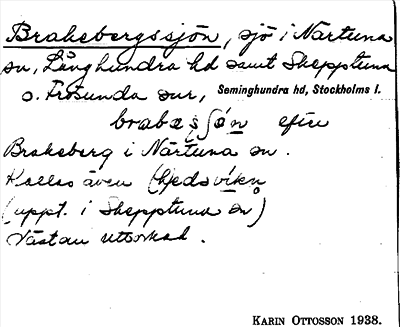 Brakebergssjön, sjö i Närtuna
sn, Långhundra hd samt Skepptuna
o. Frösunda snr, Seminghundra hd, Stockholms l.
efter
Brakeberg i Närtuna sn.
Kallas även
(uppt. i Skepptuna sn)
Nästan uttorkad.
KARIN OTTOSSON 1938.